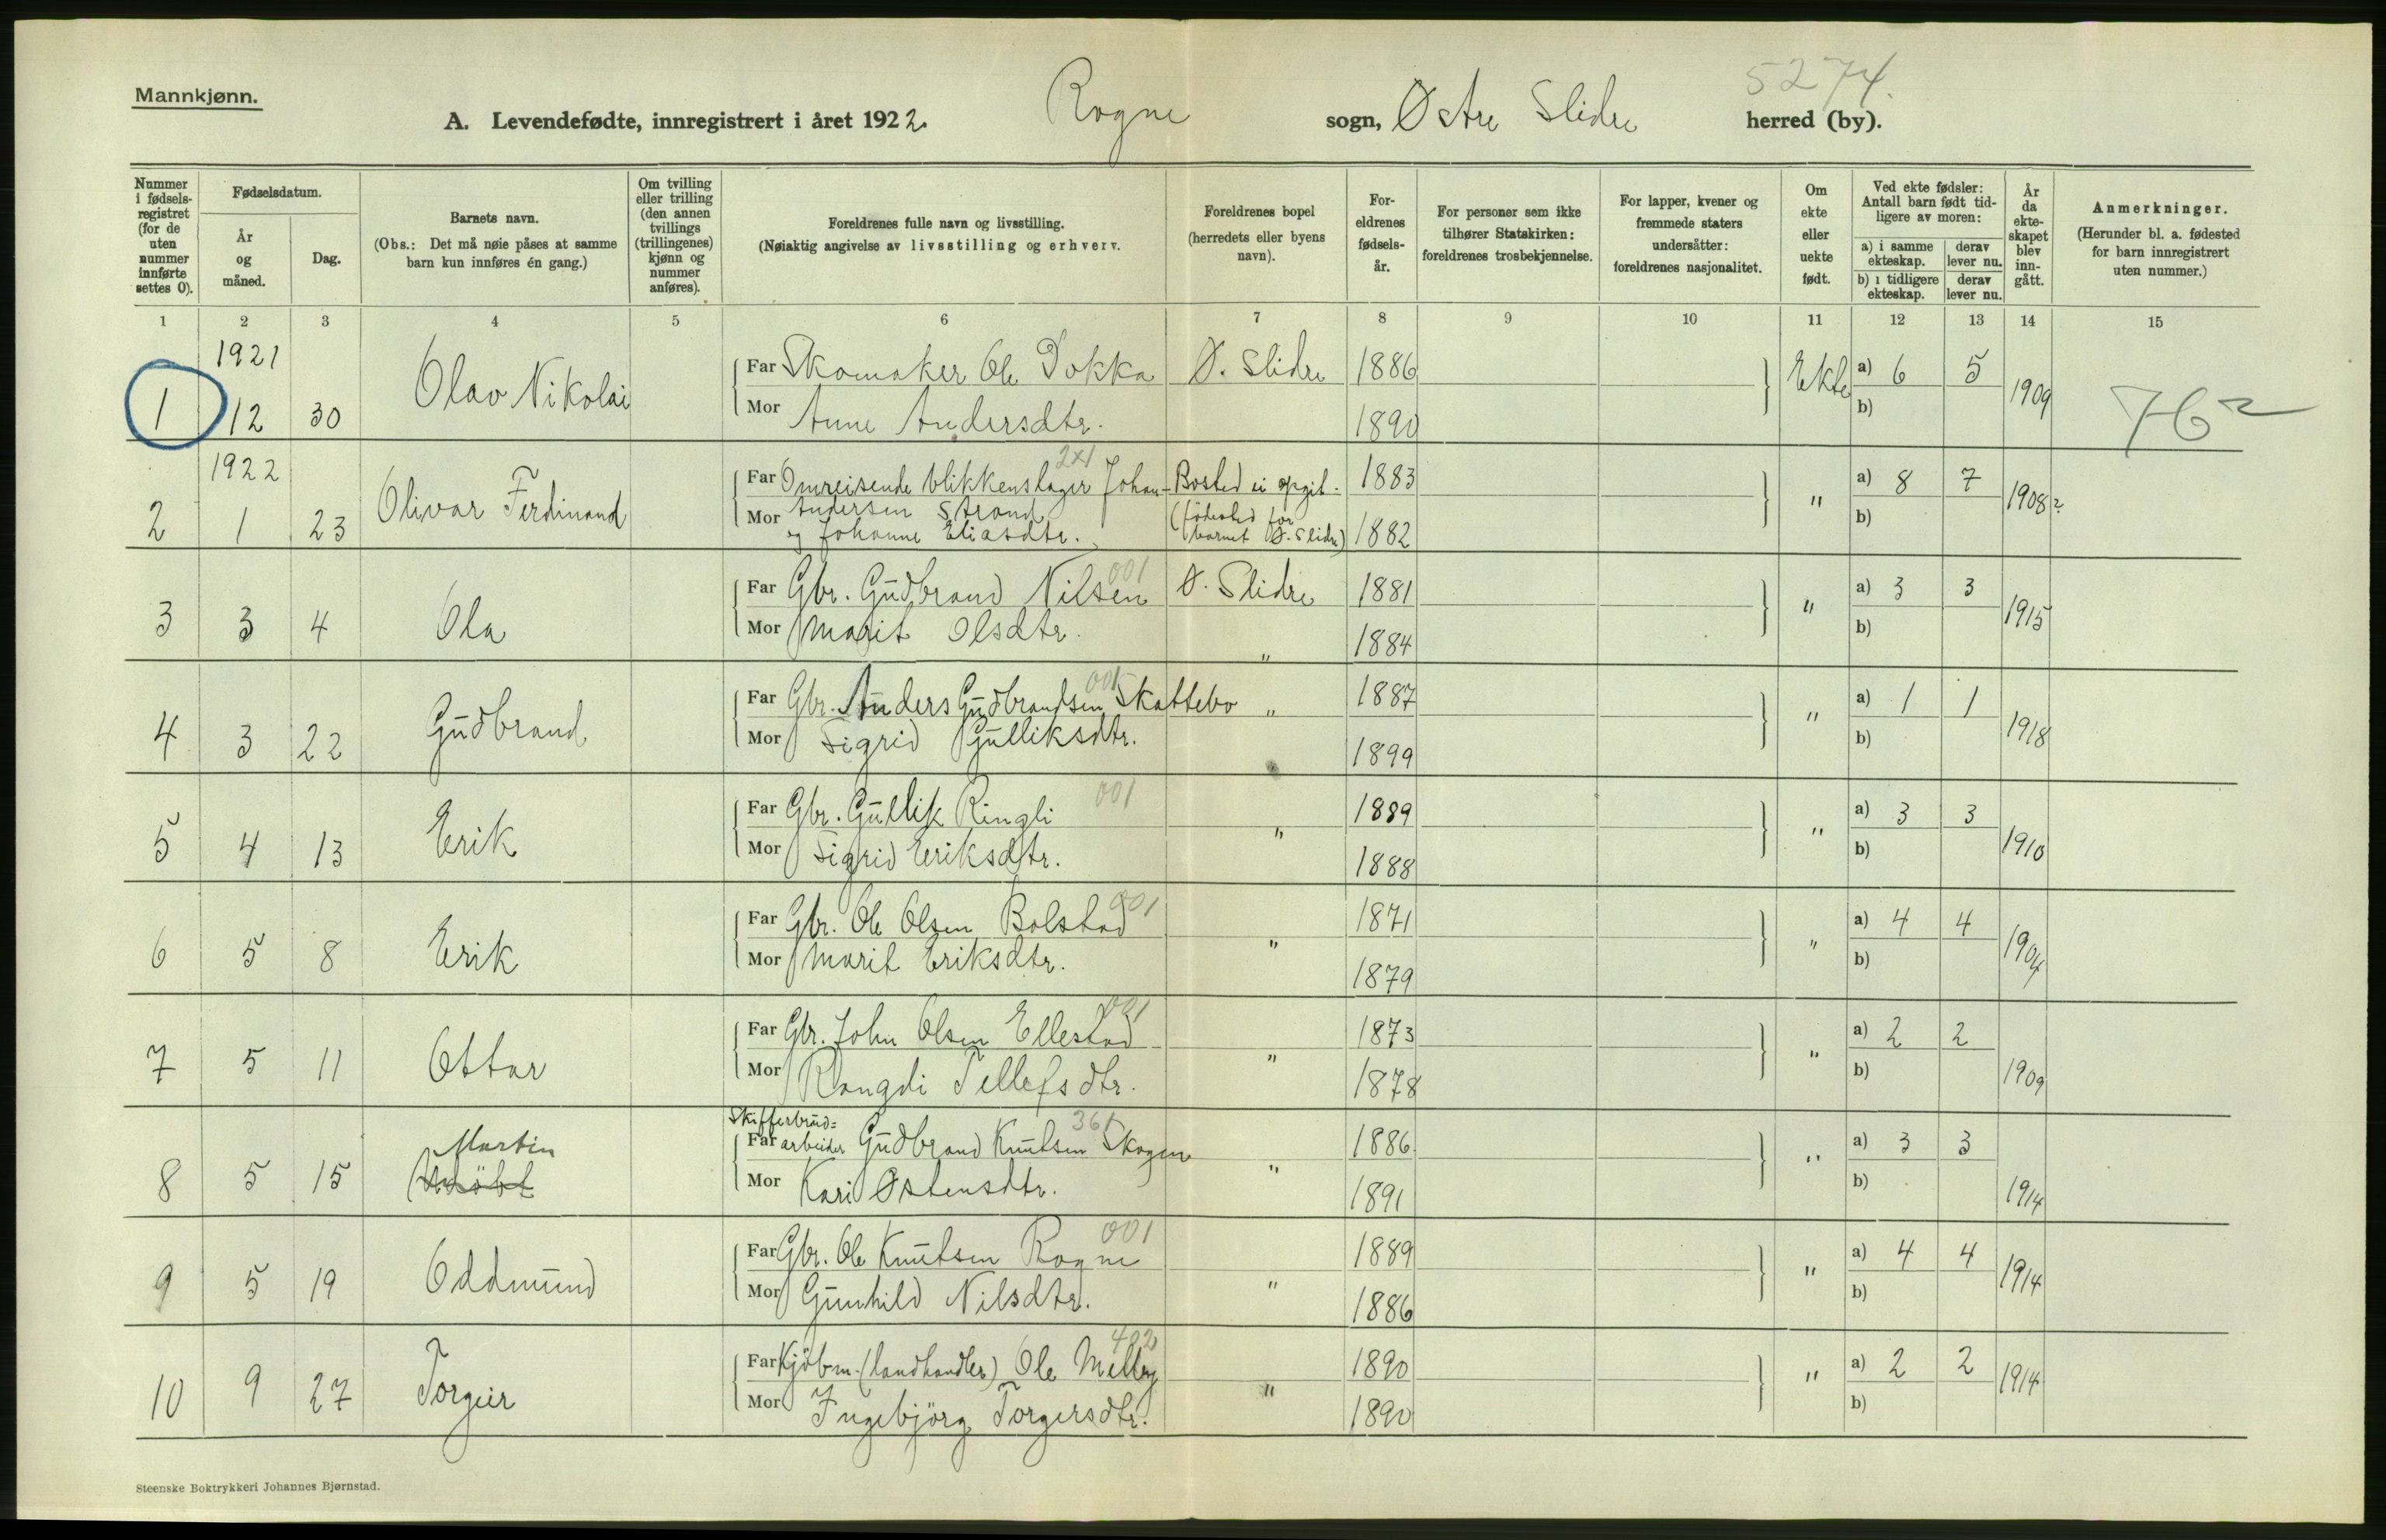 Mannkjønn.
5274.
A. Levendefødte, innregistrert i året 1922. Rogne sogn, Østre Slidre herred (by).
Nummer i fødsels-registret (for de uten nummer innførte settes 0).
Fødselsdatum.
År og måned.
Dag.
Barnets navn.
(Obs.: Det må nøie påses at samme barn kun innføres én gang.)
Om tvilling eller trilling (den annen tvillings (trillingenes) kjønn og nummer anføres).
Foreldrenes fulle navn og livsstilling.
(Nøiaktig angivelse av livsstilling og erhverv.
Foreldrenes bopel (herredets eller byens navn).
For-eldrenes fødsels-år.
For personer som ikke tilhører Statskirken: foreldrenes trosbekjennelse.
For lapper, kvener og fremmede staters undersåtter: foreldrenes nasjonalitet.
Om ekte eller uekte født.
Ved ekte fødsler: Antall barn født tid-ligere av moren:
a) i samme ekteskap.
derav lever nu.
b) i tidligere ekteskap.
derav lever nu.
År da ekte-skapet blev inn-gått.
Anmerkninger.
(Herunder bl. a. fødested for barn innregistrert uten nummer.)
1 2 3 4 5 6 7 8 9 10 11 12 13 14 15
1921
1 12 30 Olav Nikolai Far Skomaker Ole Dokka Ø. Slidre 1886 Ekte a) 6 5 1909 762
Mor Anne Andersdtr. 1890 b)
1922
2 1 23 Olivar Ferdinand Far Omreisende blikkenslager Johan 2x1 Bosted ei opgit. 1883 " a) 8 7 1908?
Andersen Strand (fødested for
Mor og Johanne Eliasdtr. barnet Ø. Slidre) 1882 b)
3 3 4 Ola Far Gbr. Gudbrand Nilsen 001 Ø. Slidre 1881 " a) 3 3 1915
Mor Marit Olsdtr. " 1884 b)
4 3 22 Gudbrand Far Gbr. Anders Gudbrandsen Skattebo 001 " 1887 " a) 1 1 1918
Mor Sigrid Gulliksdtr. 1899 b)
5 4 13 Erik Far Gbr. Gullik Ringli 001 " 1889 " a) 3 3 1910
Mor Sigrid Eriksdtr. 1888 b)
6 5 8 Erik Far Gbr. Ole Olsen Bolstad 001 " 1871 " a) 4 4 1904
Mor Marit Eriksdtr. 1879 b)
7 5 11 Ottar Far Gbr. John Olsen Ellestad 001 " 1873 " a) 2 2 1909
Mor Rangdi Tellefsdtr. 1878 b)
Skifferbrud=
8 5 15 Martin Udöbt Far arbeider Gudbrand Knutsen Skogen 361 " 1886 " a) 3 3 1914
Mor Kari Østensdtr. 1891 b)
9 5 19 Oddmund Far Gbr. Ole Knutsen Rogne 001 " 1889 " a) 4 4 1914
Mor Gunhild Nilsdtr. 1886 b)
10 9 27 Torgeir Far Kjöbm. (landhandler) Ole Melby 402 " 1890 " a) 2 2 1914
Mor Ingebjörg Torgersdtr. 1890 b)
Steenske Boktrykkeri Johannes Bjørnstad.